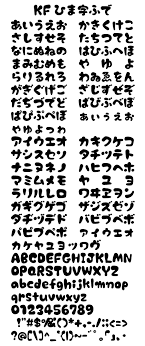 KFひま字ふで
あいうえお かきくけこ
さしすせそ たちつてと
なにぬねの はひふへほ
まみむめも や ゆ よ
らりるれろ わゐゑをん
がぎぐげご ざじずぜぞ
だぢづでど ばびぶべぼ
ぱぴぷぺぽ ぁぃぅぇぉ
ゃゅょっゎ
アイウエオ カキクケコ
サシスセソ タチツテト
ナニヌネノ ハヒフヘホ
マミムメモ ヤ ユ ヨ
ラリルレロ ワヰヱヲン
ガギグゲゴ ザジズゼゾ
ダヂヅデド バビブベボ
パピプペポ ァィゥェォ
カケャユョッヮヴ
ABCDEFGHIJKLMN
OPQRSTUVWXYZ
abcdefghijklmnop
qrstuvwxyz
0123456789